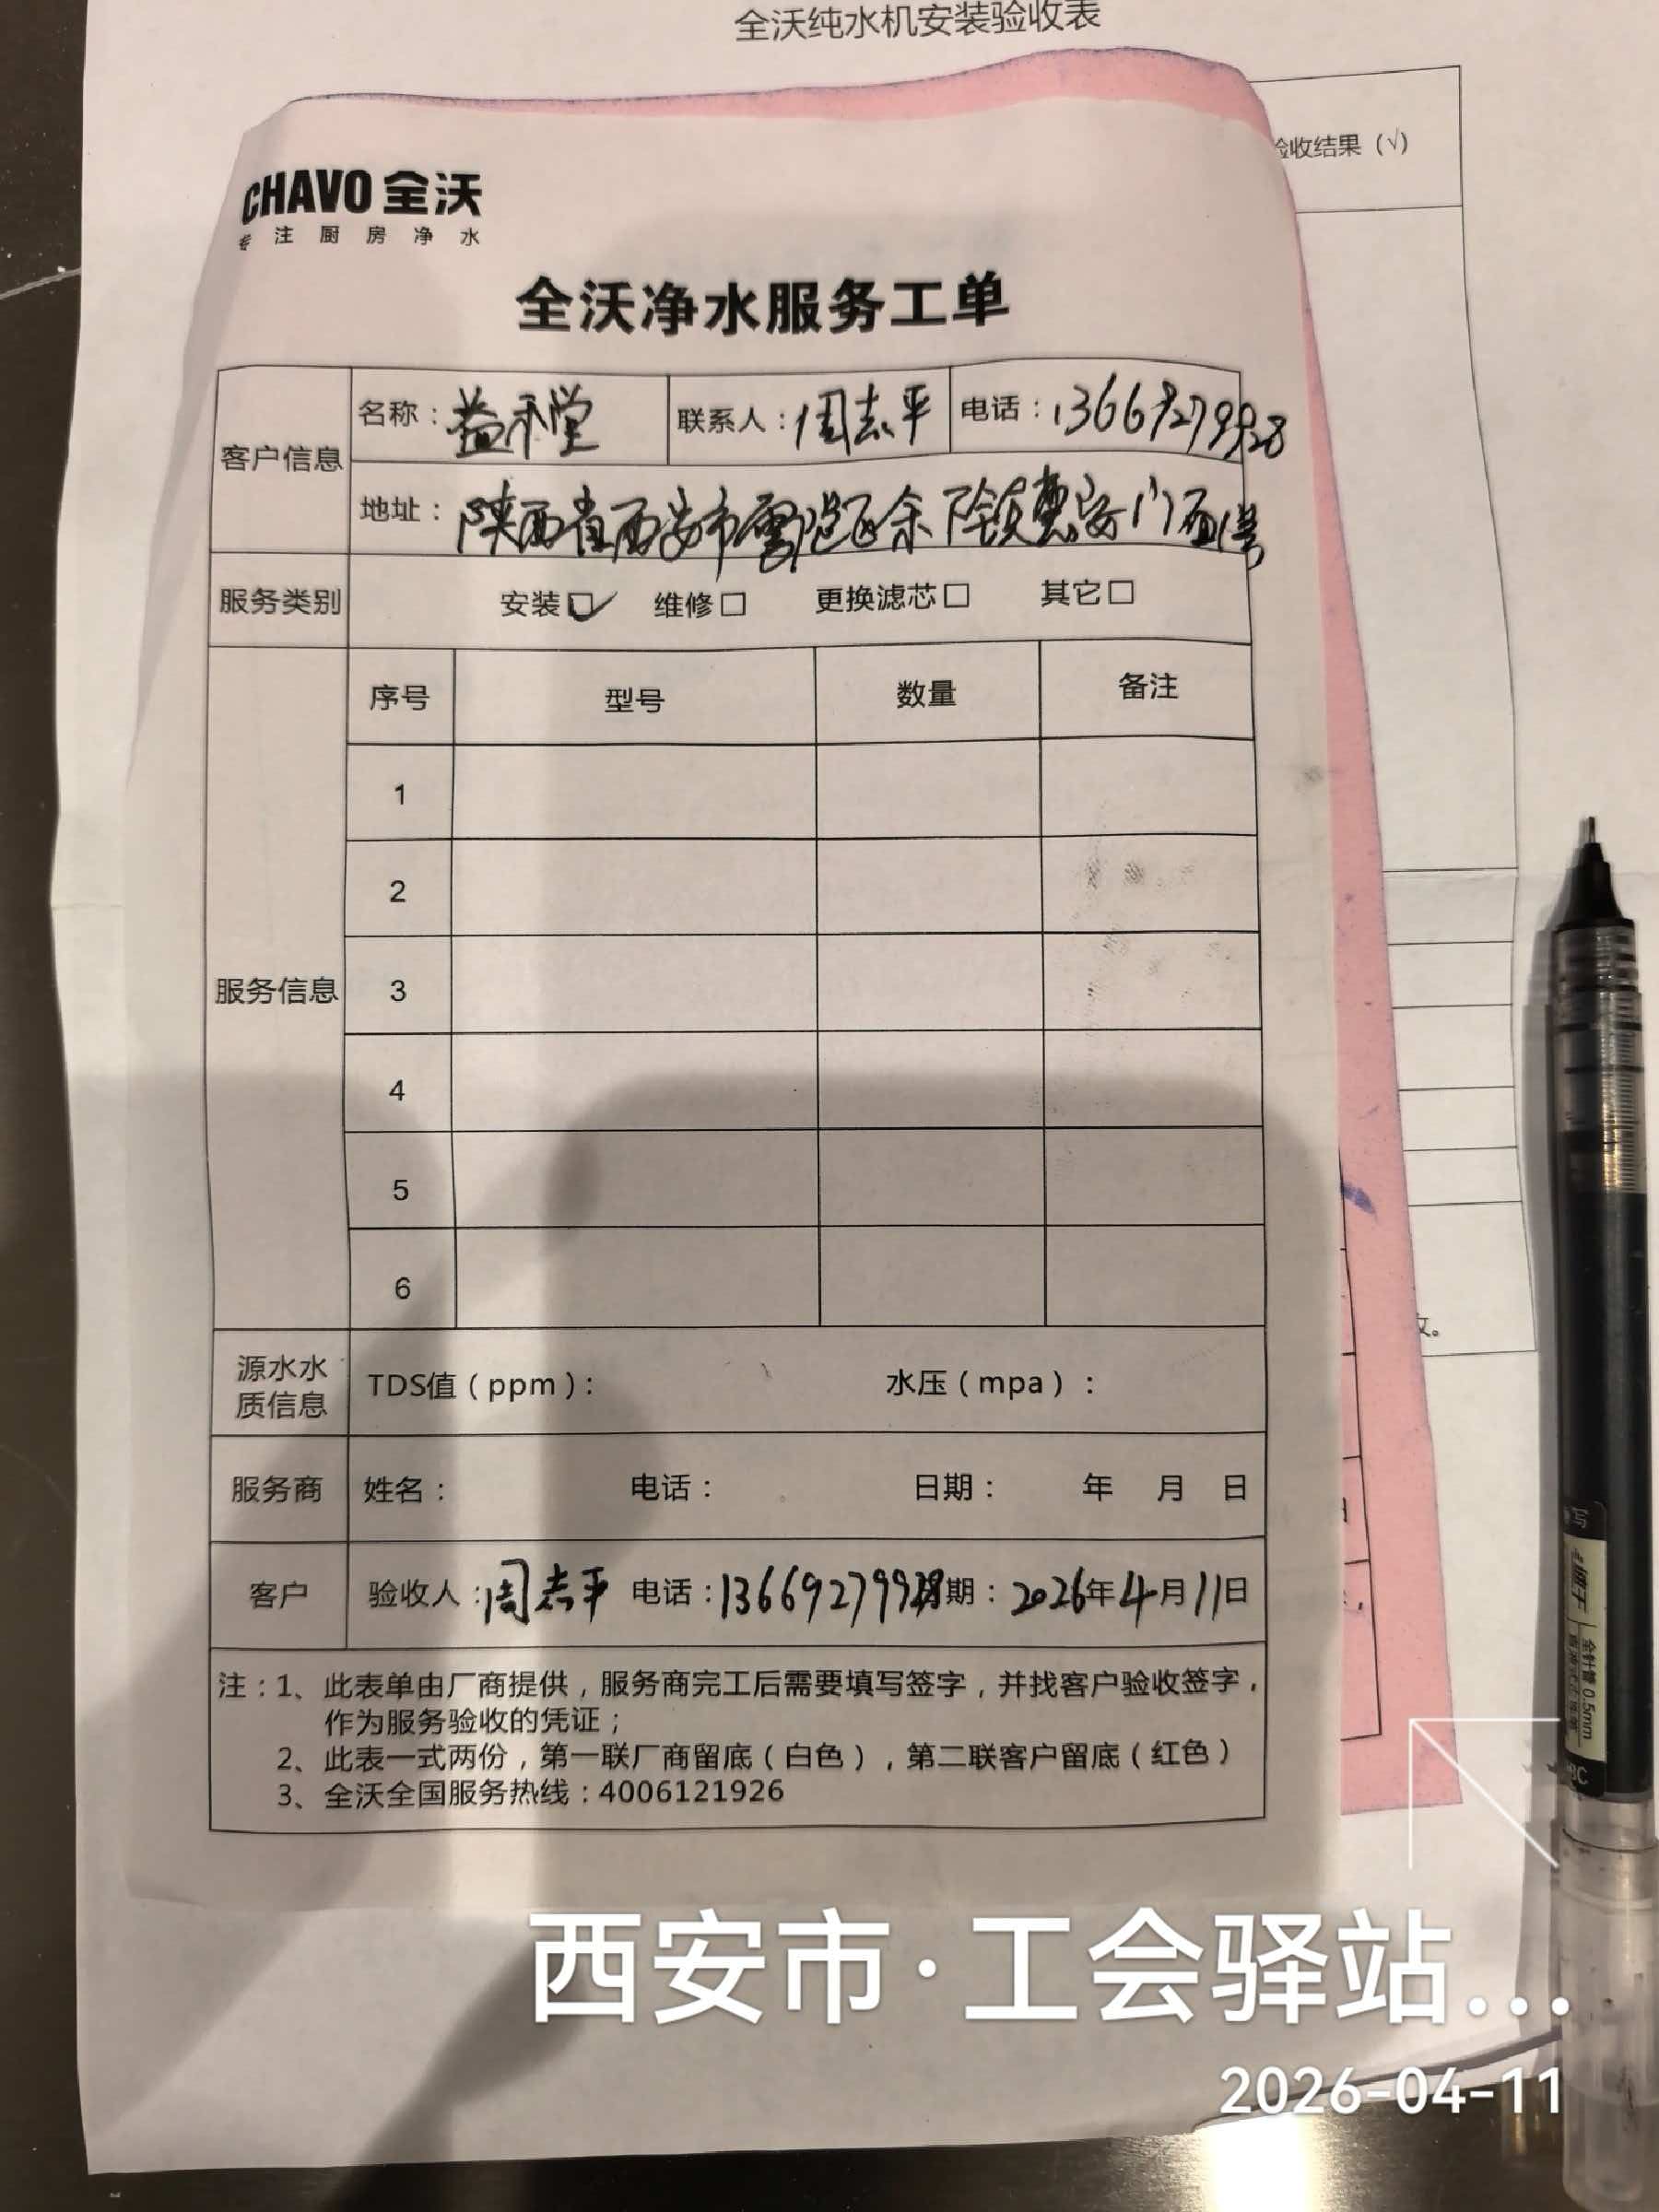 全沃纯水机安装验收表
验收结果（√）
CHAVO 全沃
专注厨房净水
全沃净水服务工单
客户信息
名称：益禾堂 联系人：周志平 电话：13669279928
地址：陕西省西安市雁塔区余
服务类别 安装☑ 维修□ 更换滤芯□ 其它□
服务信息
序号 型号 数量 备注
1
2
3
4
5
6
源水水质信息 TDS值（ppm）： 水压（mpa）：
服务商 姓名： 电话： 日期： 年 月 日
客户 验收人：周志平 电话：13669279928 期：2026年4月11日
注：1、此表单由厂商提供，服务商完工后需要填写签字，并找客户验收签字，
作为服务验收的凭证；
2、此表一式两份，第一联厂商留底（白色），第二联客户留底（红色）
3、全沃全国服务热线：4006121926
全针管 0.5mm
西安市·工会驿站...
2026-04-11